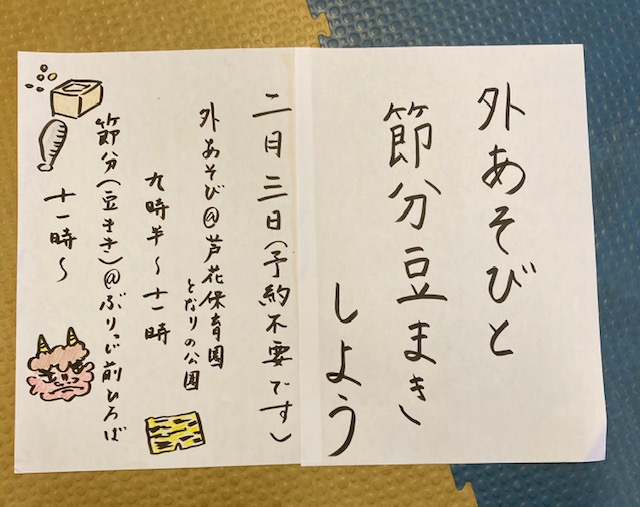 外あそびと
節分豆まき
しよう
二月三日(予約不要です)
外あそび@芦花保育園
となりの公園
九時半~十一時
節分(豆まき)@ぶりっじ前ひろば
十一時~